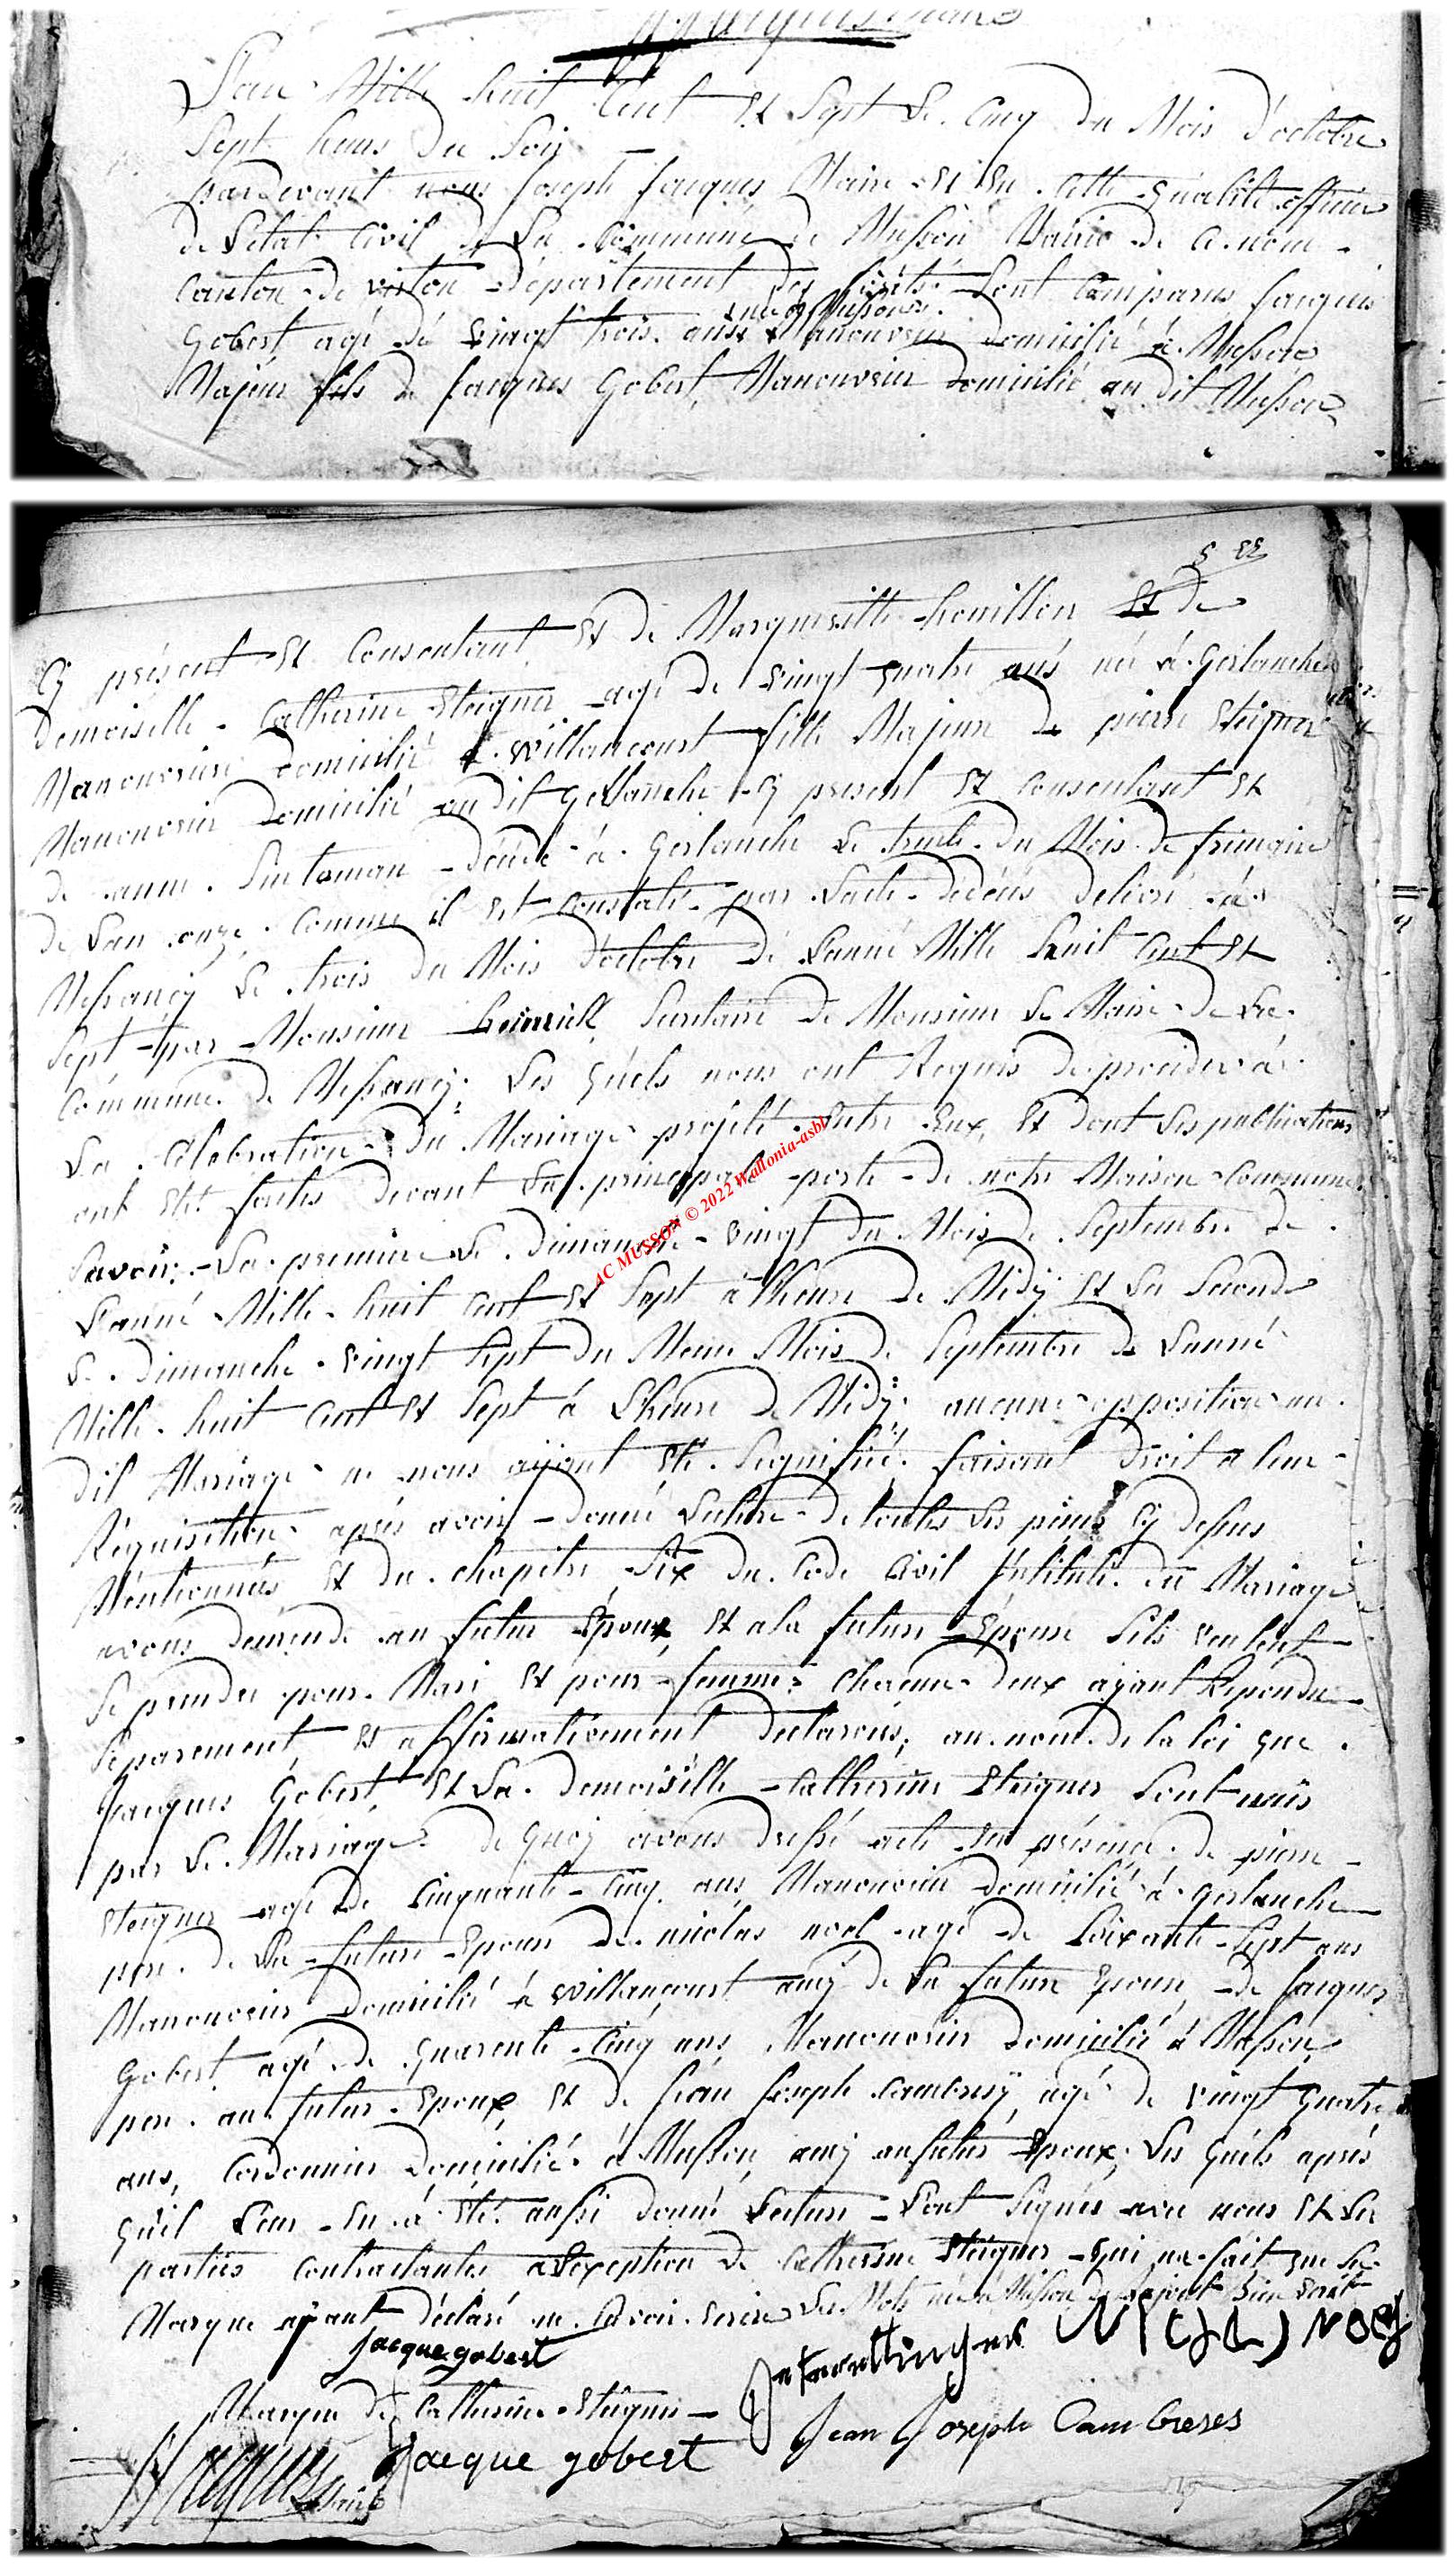 L'an Mille huit Cent Et Sept Le Cinq du Mois d'octobre
Sept heures Du Soir
pardevant nous Joseph Jacques Maire Et En Cette Qualité officier
de Letat Civil de La Commune de Musson Mairie de ce nom
Canton de virton Département des forêts Sont Comparus Jacques
née à Musson
Gobert agé de vingt trois ans Manouvrier domicilié à Musson
Majeur fils de Jacques Gobert, Manouvrier domicilié au dit Musson
Cy présent Et Consentant Et de Margueritte houillon Et de
demoiselle Catherine Steigner agé de vingt quatre ans né à Gerlanche
Manouvriere domicilié à Willancourt fille Majeure de pierre Steigner
Manouvrier domicilié audit Gerlanche Cy present Et Consentant Et
de anne décédé à Gerlanche Le trente du Mois de frimaire
de Lan onze Comme il Est Constaté par Lacte decéès delivré à
Messancÿ Le trois du Mois d'octobre de Lanné Mille huit Cent Et
Sept par Monsieur Secretaire de Monsieur Le Maire de La
Commune de Messancÿ; Les Quels nous ont Requis de proceder à
La Celebration du Mariage projété Entre Eux, Et dont Les publications
ont Eté faites devant La principale porte de notre Maison Commune
Savoir; La premiere Le dimanche vingt du Mois de Septembre de
Lanné Mille huit Cent Et Sept à Lheure de Midÿ Et La Seconde
Le dimanche vingt Sept du Meme Mois de Septembre de Lanné
Mille huit Cent Et Sept à Lheure de Midÿ; aucune opposition au
dit Mariage ne nous aÿant Eté Signifié faisant droit a leur
Réquisition après avoir donné Lecture de toutes Les pieces Cy dessus
Mentionnées Et du chapitre Six du Code Civil Intitulé du Mariage
avons demendé au futur Epoux, Et a la future Epouse Sils veulent
Se prendre pour Mari Et pour femme: Chacune deux aÿant Repondu
Séparement, Et affirmativement declarons, au nom de la loi que
Jacques Gobert, Et La demoiselle Catherine Steigner Sont unis
par Le Mariage de Quoÿ avons dressé acte En présence de pierre
Steigner agé de Cinquante Cinq ans, Manouvrier domicilié à Gerlanche
pere de La future Epouse de nicolas noel agé de Soixante Sept ans
Manouvrier domicilié à Willancourt amÿ de La future Epouse, de Jacques
Gobert agé de Quarente Cinq ans, Manouvrier domicilié à Musson
pere au futur Epoux, Et de Jéan Joseph Cambresÿ, agé de vingt quatre
ans, Cordonnier domicilié à Musson, amÿ au futur Epoux. Les Quels après
Quil Leur En à Eté aussi donné Lecture Sont Signés avec nous Et Les
parties Contractantes a Lexception de Catherine Steigner Qui na fait que Sa
Marque aÿant déclaré ne Savoir Ecrire Les Mots née à Musson
jacque gobert
NICOL NOEL
Marque de Catherine Steigner
Jean Joseph Cambreses
Jacque gobert
Jacques Maire
AC MUSSON © 2022 Wallonia-asbl